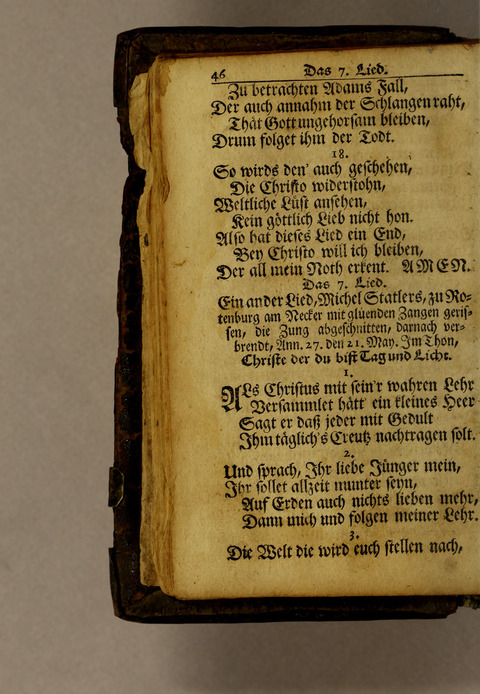 46 Das 7. Lied.
Zu betrachten Adams Fall,
Der auch annahm der Schlangen raht,
Thät Gott ungehorsam bleiben,
Drum folget ihm der Todt.
18.
So wirds den' auch geschehen,
Die Christo widerstohn,
Weltliche Lüst ansehen,
Kein göttlich Lieb nicht hon.
Also hat dieses Lied ein End,
Bey Christo will ich bleiben,
Der all mein Noth erkent. AMEN.
Das 7. Lied.
Ein ander Lied, Michel Statlers, zu Ro-
tenburg am Necker mit glüenden Zangen geris-
sen, die Zung abgeschnitten, darnach ver-
brendt, Ann. 27. den 21. May. Im Thon,
Christe der du bist Tag und Licht.
1.
Als Christus mit sein'r wahren Lehr
Versammlet hätt' ein kleines Heer
Sagt er daß jeder mit Gedult
Ihm täglich's Creutz nachtragen solt.
2.
Und sprach, Ihr liebe Jünger mein,
Ihr sollet allzeit munter seyn,
Auf Erden auch nichts lieben mehr,
Dann mich und folgen meiner Lehr.
3.
Die Welt die wird euch stellen nach,